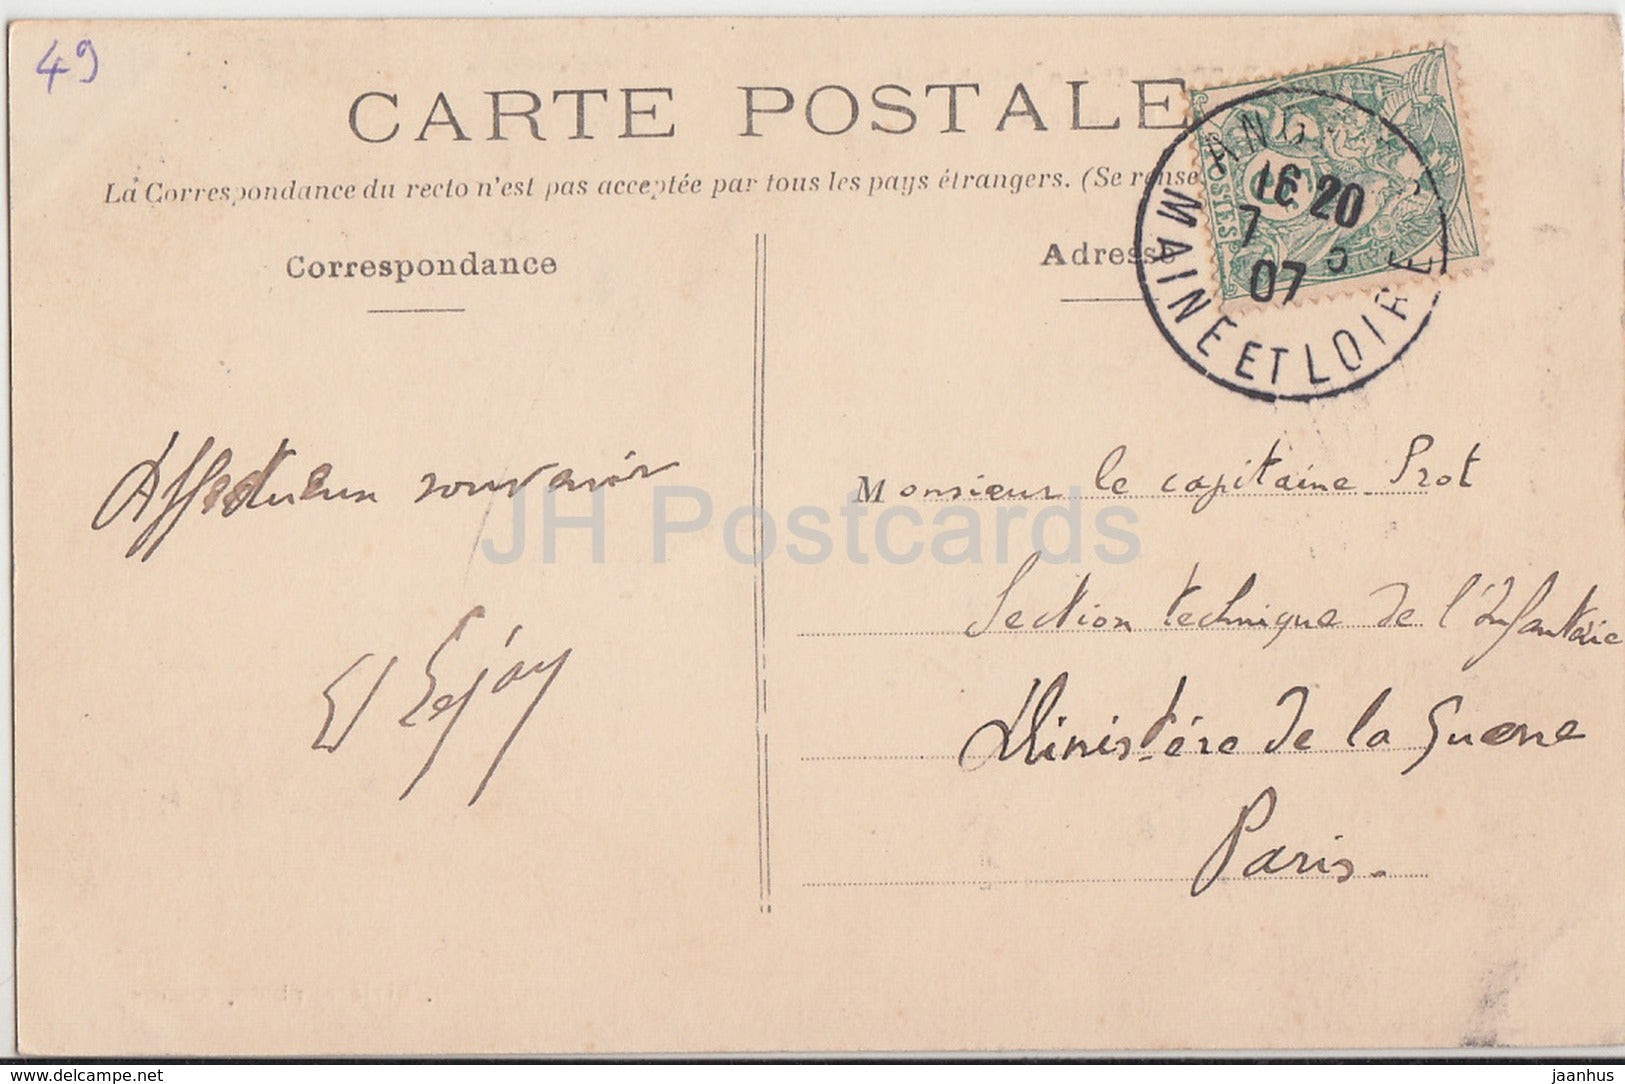 49
CARTE POSTALE
La Correspondance du recto n'est pas acceptée par tous les pays étrangers. (Se rense
Correspondance
Adresse
POSTES
16 20
7
07
MAINE ET LOIRE
Affectueux souvenir
Monsieur le capitaine Prot
Section technique de l'Infanterie
Ministère de la Guerre
Paris.
JH Postcards
delcampe.net
jaanhus